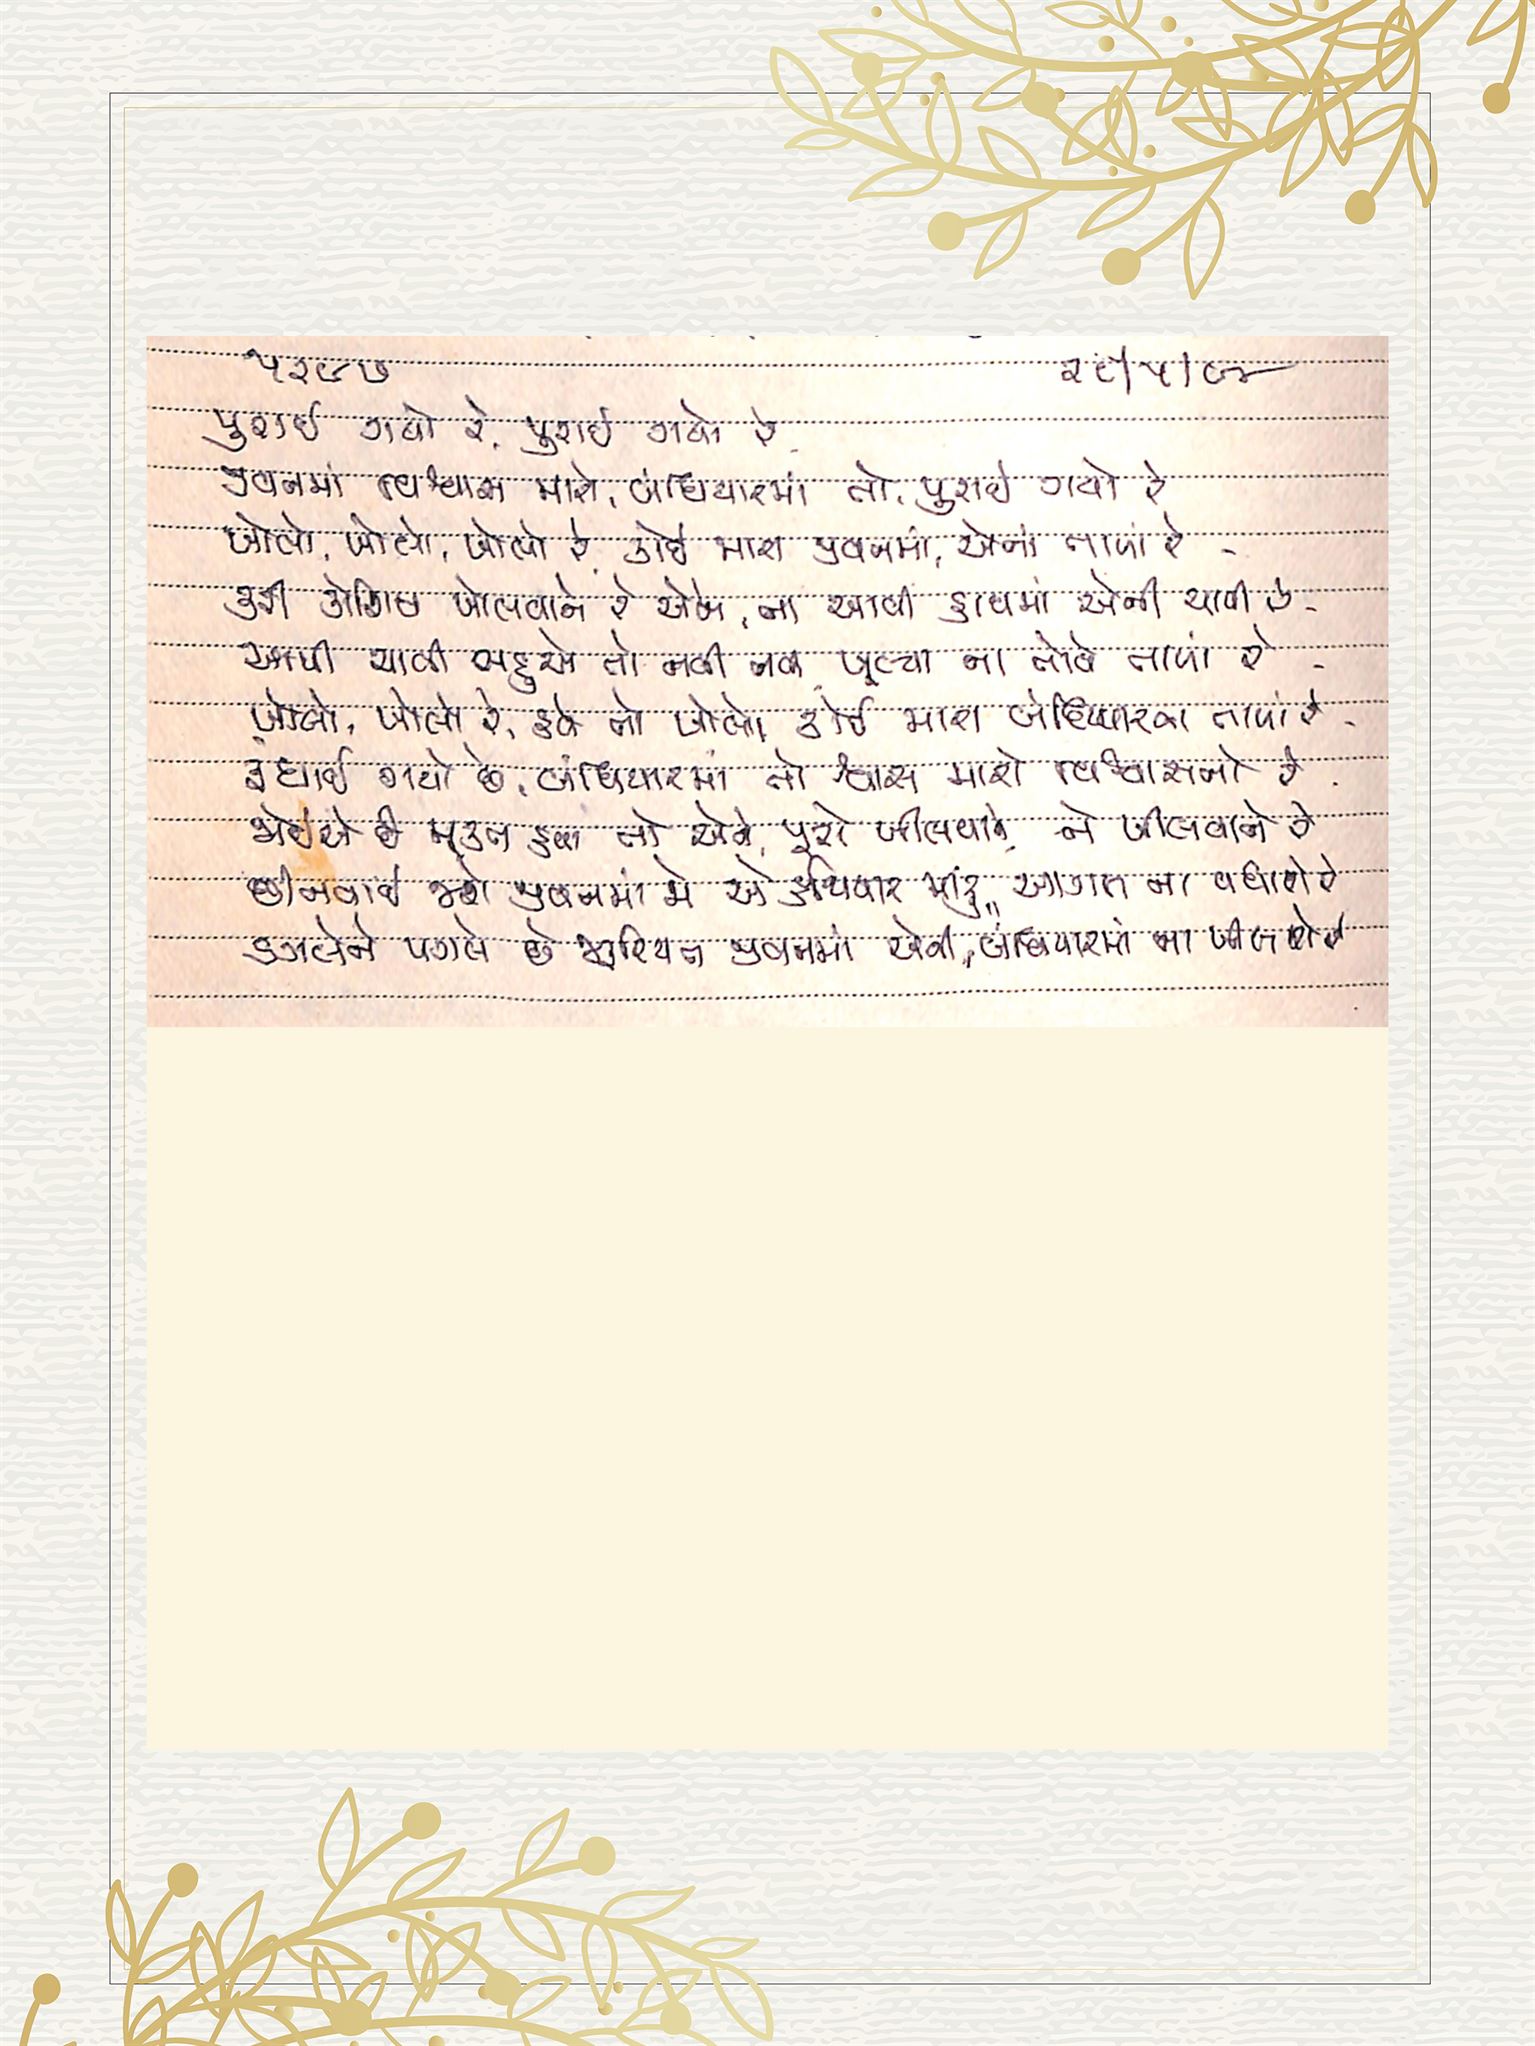 ૫૨૯૭ ૨૯/૫/૯૪
પુરાઈ ગયો રે, પુરાઈ ગયો રે
જીવનમાં વિશ્વાસ મારો, અંધિયારમાં તો, પુરાઈ ગયો રે
ખોલો, ખોલો, ખોલો રે, કોઈ મારા જીવનમાં, એનાં તાળાં રે -
કરી કોશિશ ખોલવાને રે એને, ના આવી હાથમાં એની ચાવી રે -
આપી ચાવી બહુએ તો નવી નવી, ખૂલ્યા ના તોયે તાળાં રે -
ખોલો, ખોલો રે, હવે તો ખોલો, કોઈ મારા અંધિયારના તાળાં રે -
રૂંધાઈ ગયો છે, અંધિયારમાં તો શ્વાસ મારો વિશ્વાસનો રે
જોઈએ છે મુક્ત હવા તો એને, પૂરો ખીલવાને ને ખીલવાને રે
છીનવાઈ જાશે જીવનમાં જો એ હથિયાર મારું, આગળ ના વધાશે રે
ડગલેને પગલે છે જરૂરિયાત જીવનમાં એની, અંધિયારમાં ના ખીલશે રે